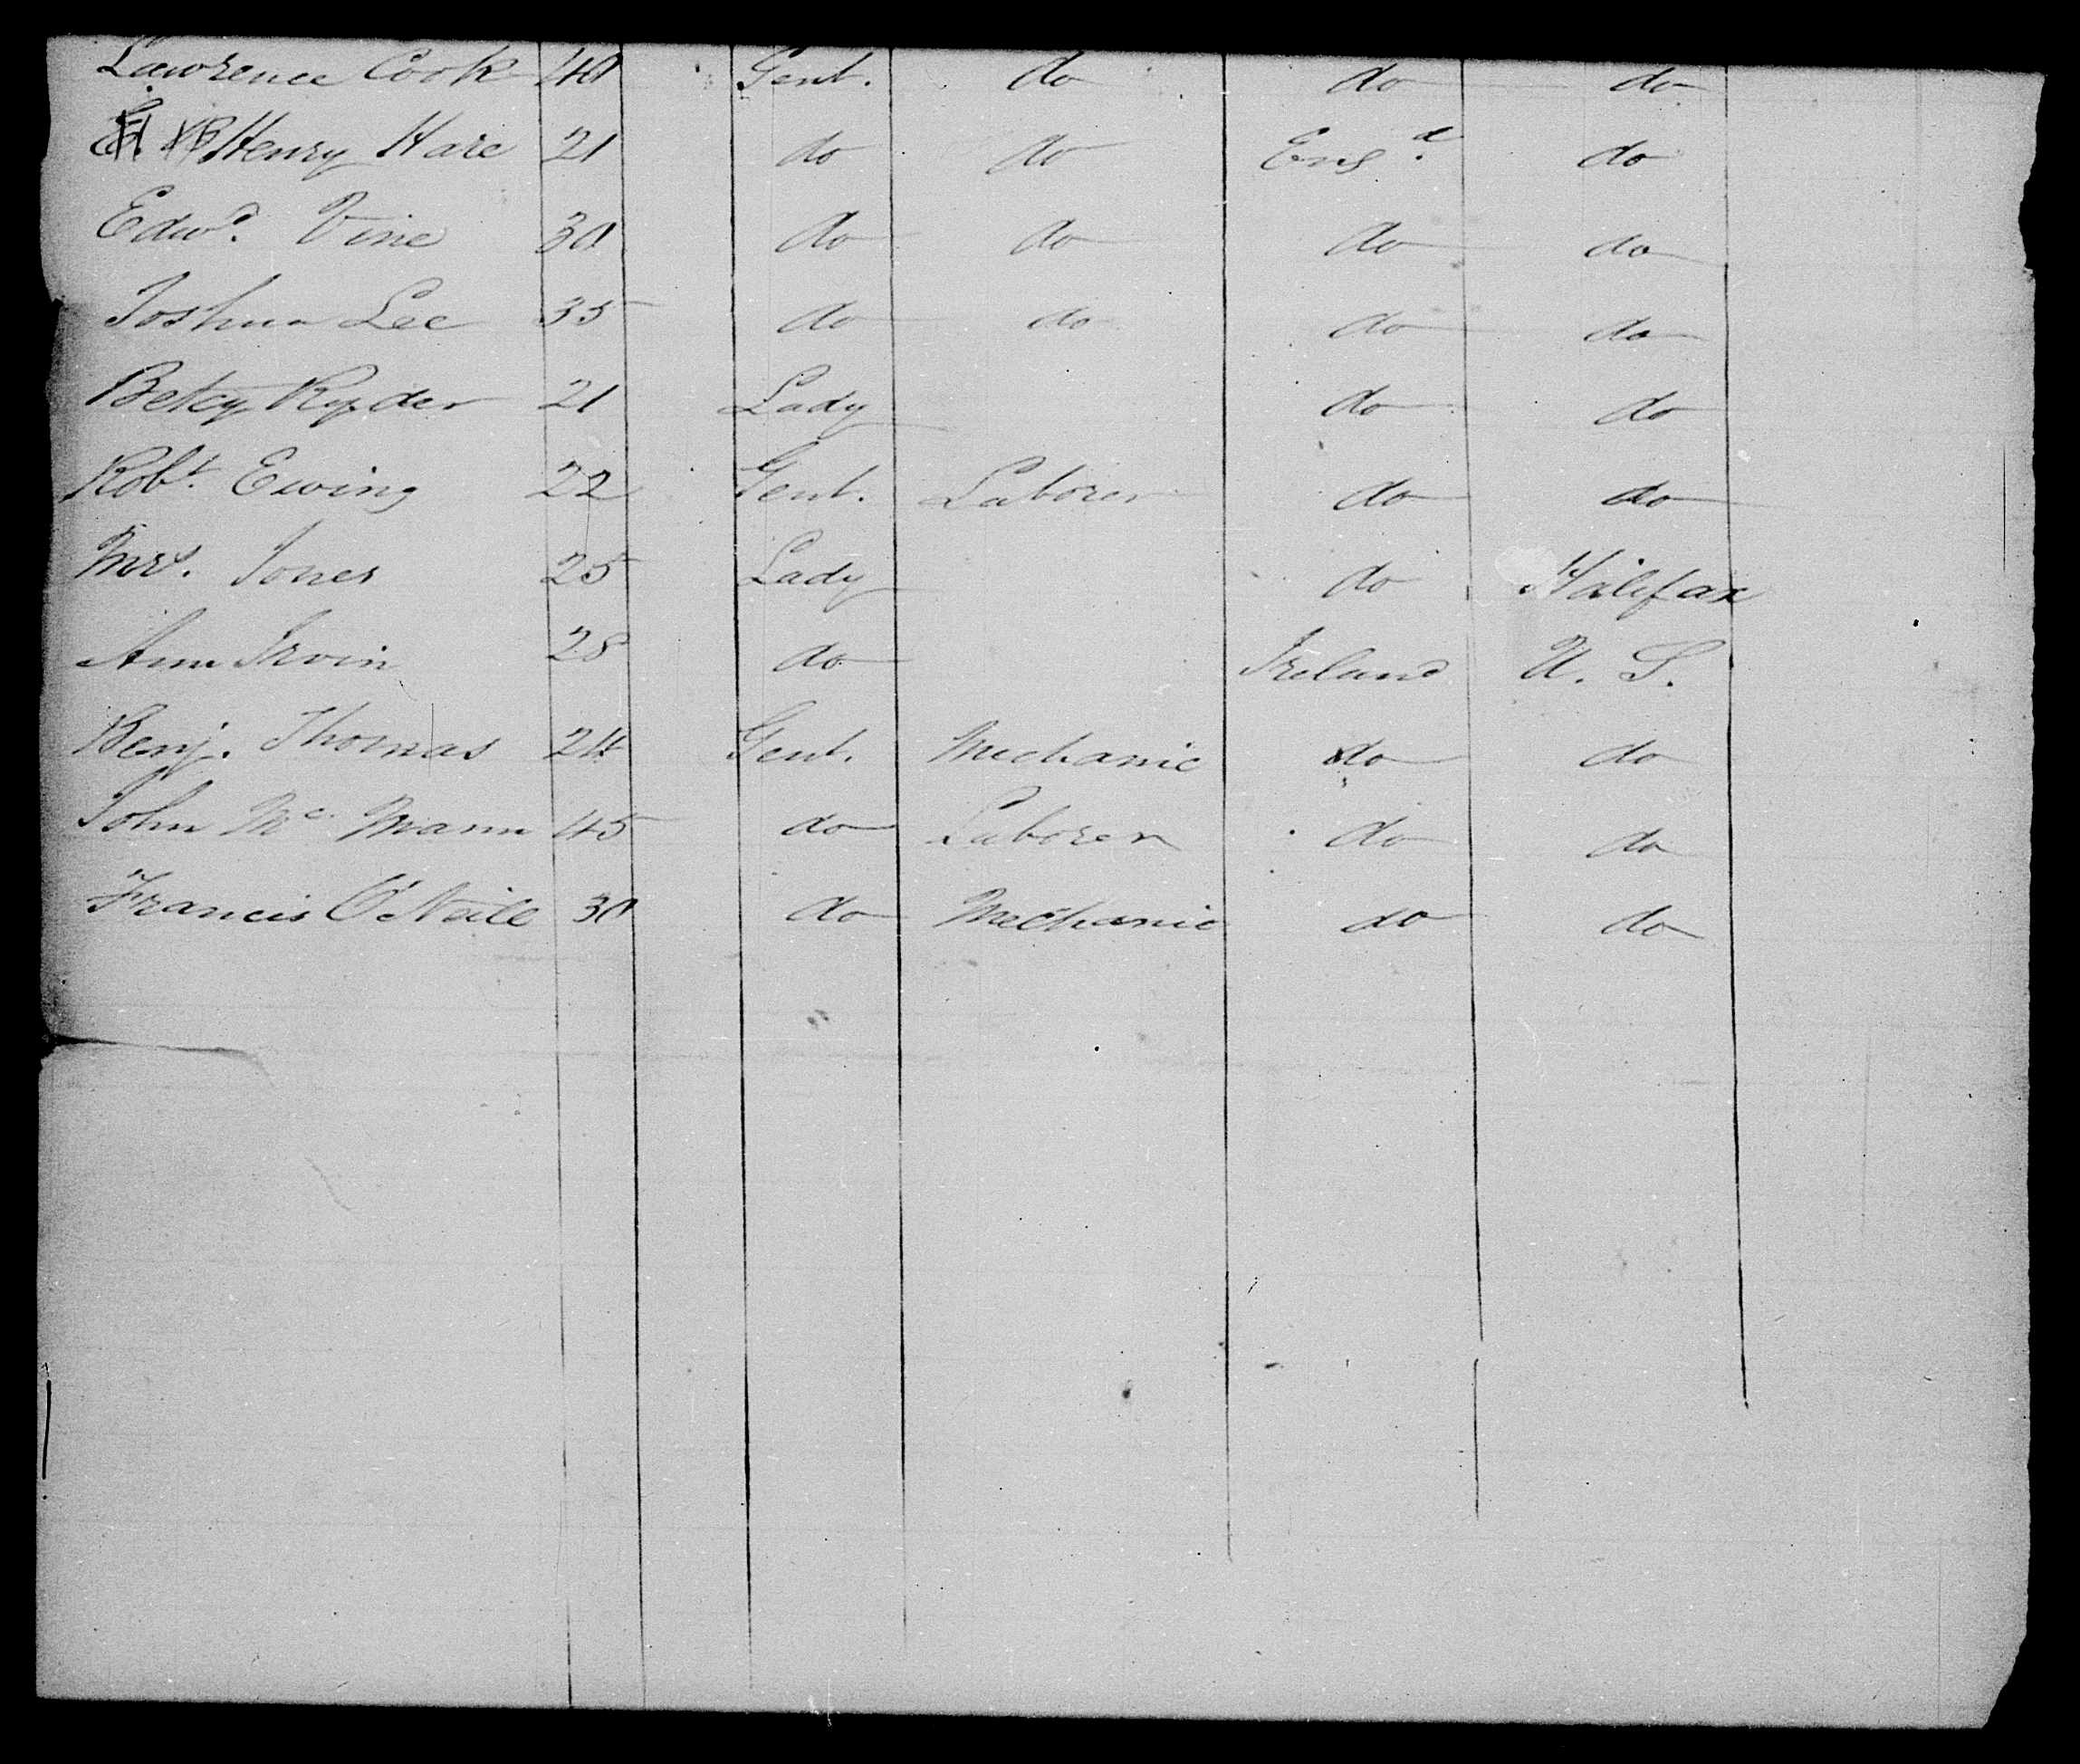 Lawrence Cook 40 Gent. do do do
Henry Hare 21 do do Engd. do
Edwd. Vine 30 do do do do
Joshua Lee 35 do do do do
Betcy Ryder 21 Lady do do
Robt. Ewing 22 Gent. Laborer do do
Mrs. Jones 25 Lady do Halifax
Ann Irvin 28 do Ireland U. S.
Benj. Thomas 24 Gent. Mechanic do do
John Mc Mann 45 do Laborer do do
Francis O'Neill 30 do Mechanic do do